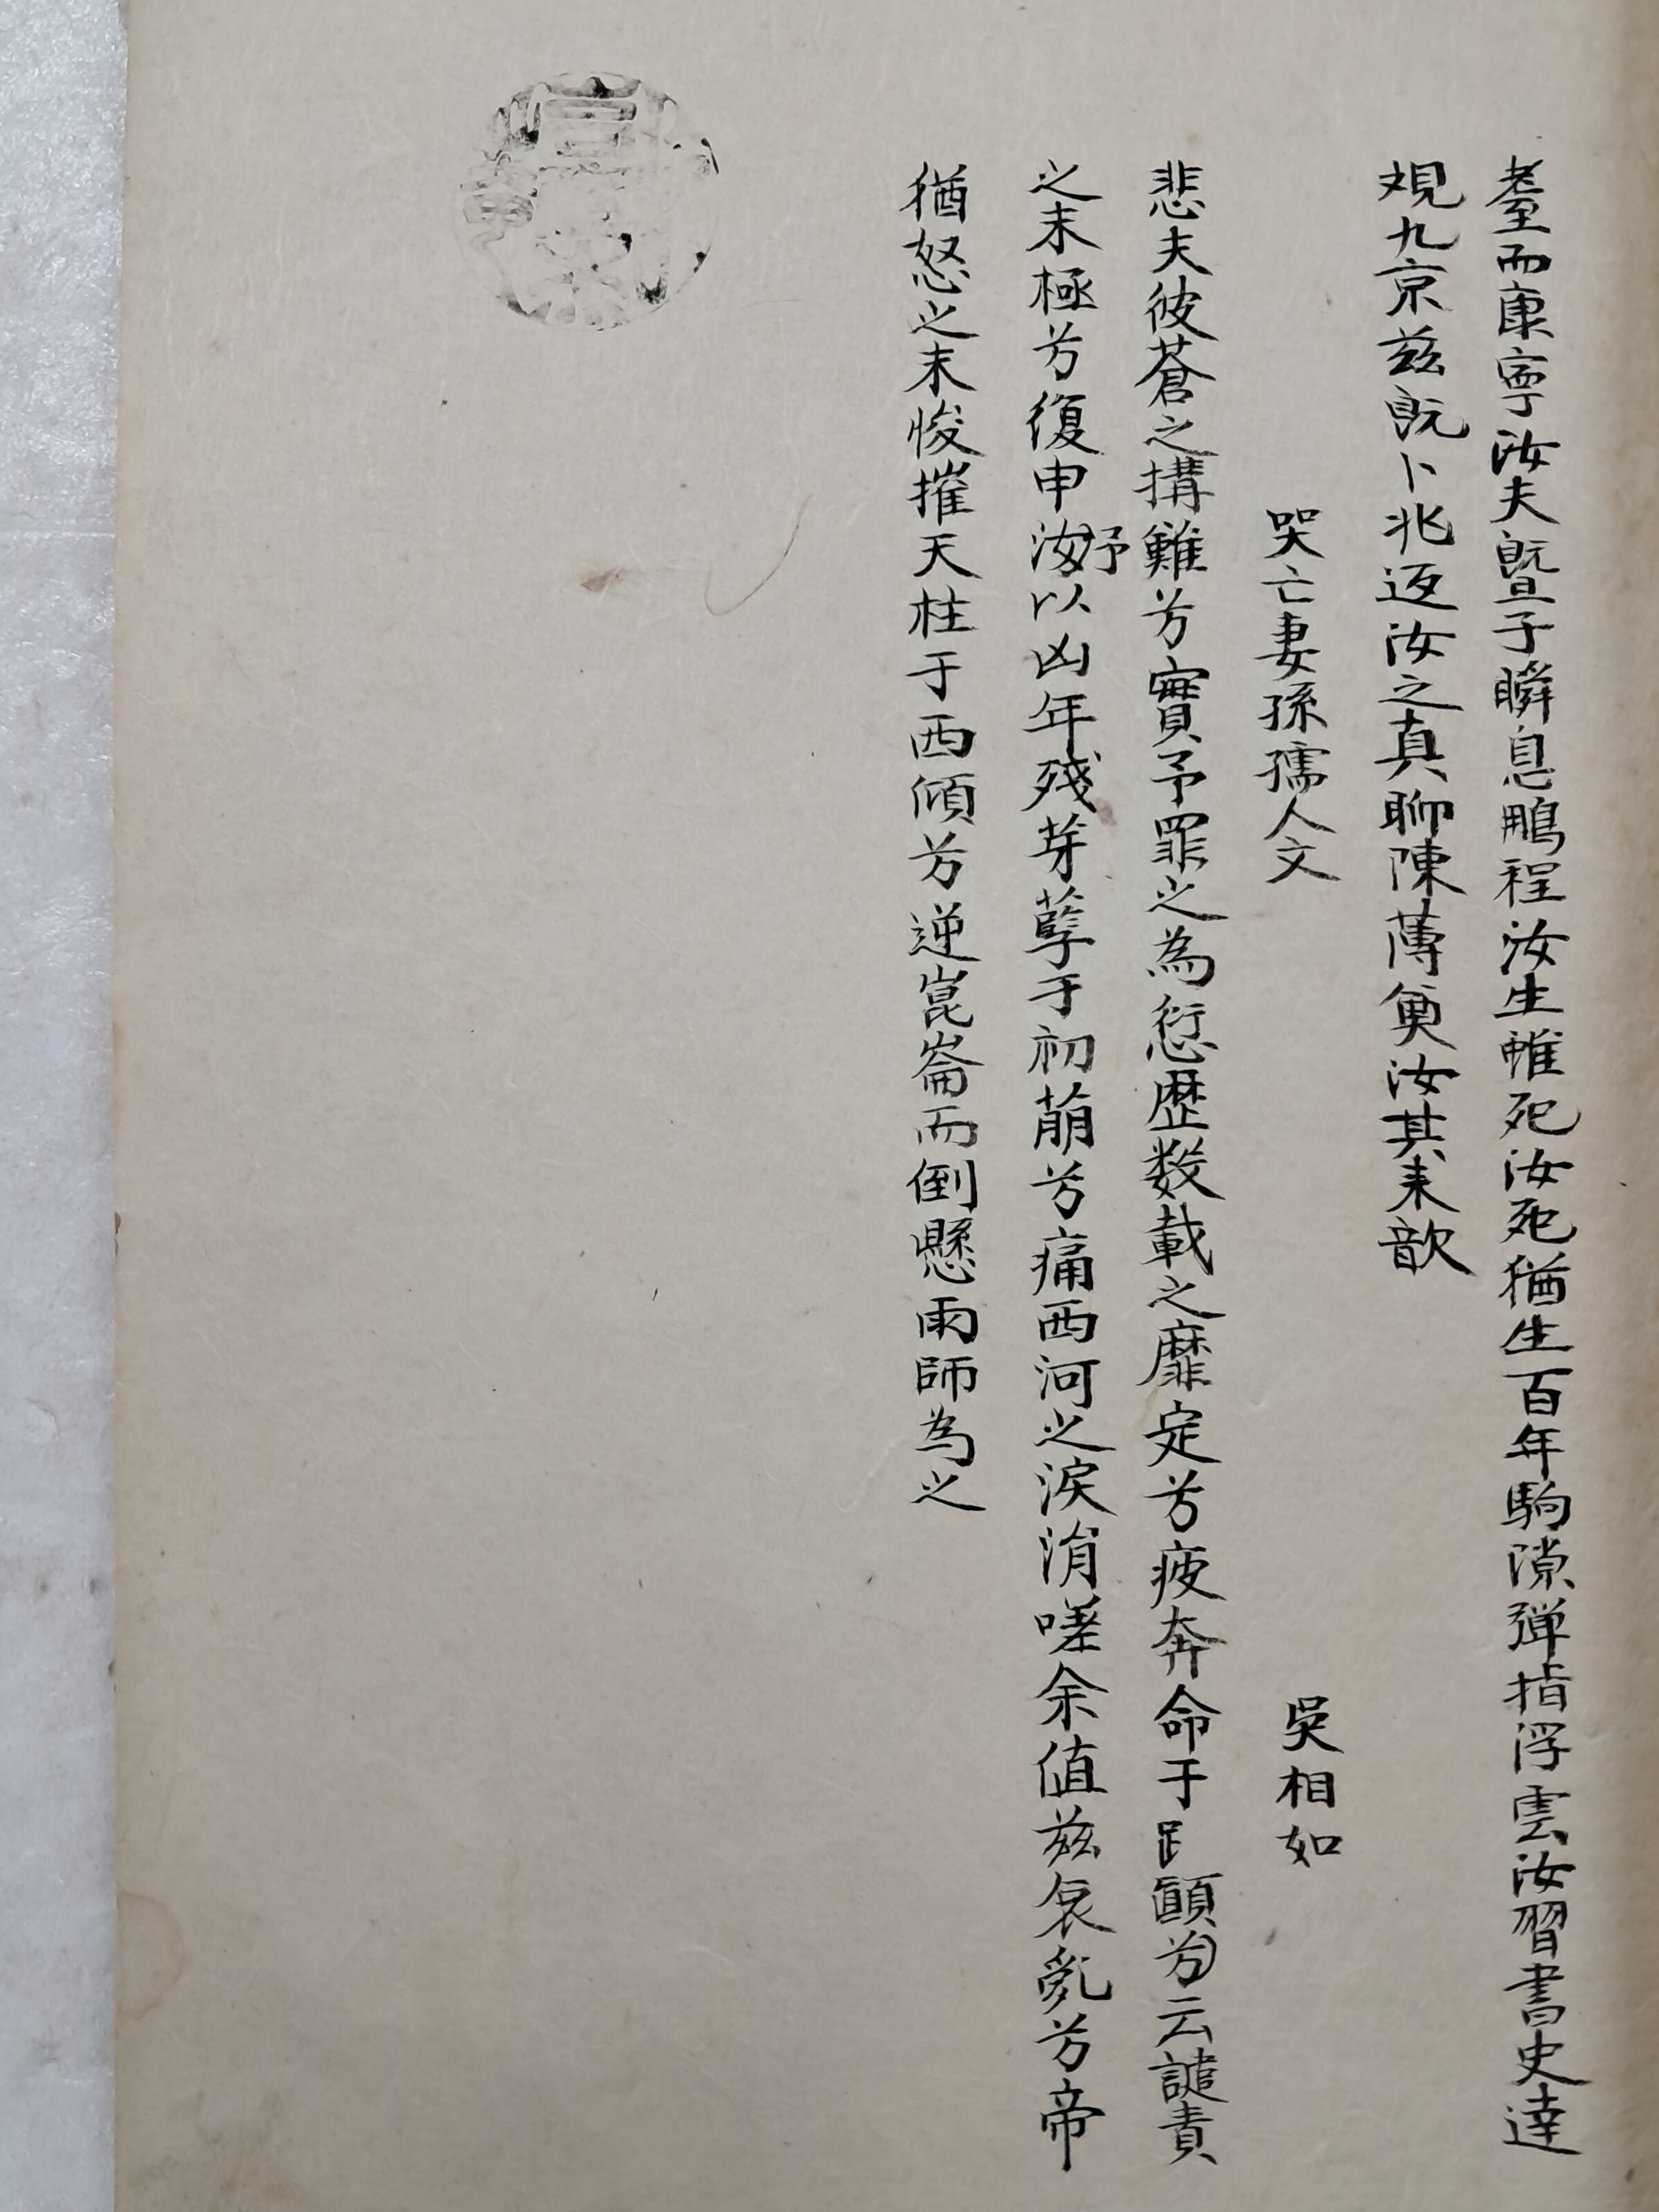 耋而康寧汝夫暨子瞬息鵬程汝生雖死汝死猶生百年駒隙弹指浮雲汝習書史達
覌九京兹既卜兆返汝之真聊陳薄奠汝其来歆
哭亡妻孫孺人文　吳相如
悲夫彼蒼之搆難兮實予罪之為愆歴数載之靡定兮疲奔命于𧾷顗兮云譴責
之未極兮復申汝予以凶年殘芽孽于初萠兮痛西河之淚㳙嗟余值兹喪乱兮帝
猶怒之未悛摧天柱于西傾兮逆崑崙而倒懸雨師為之